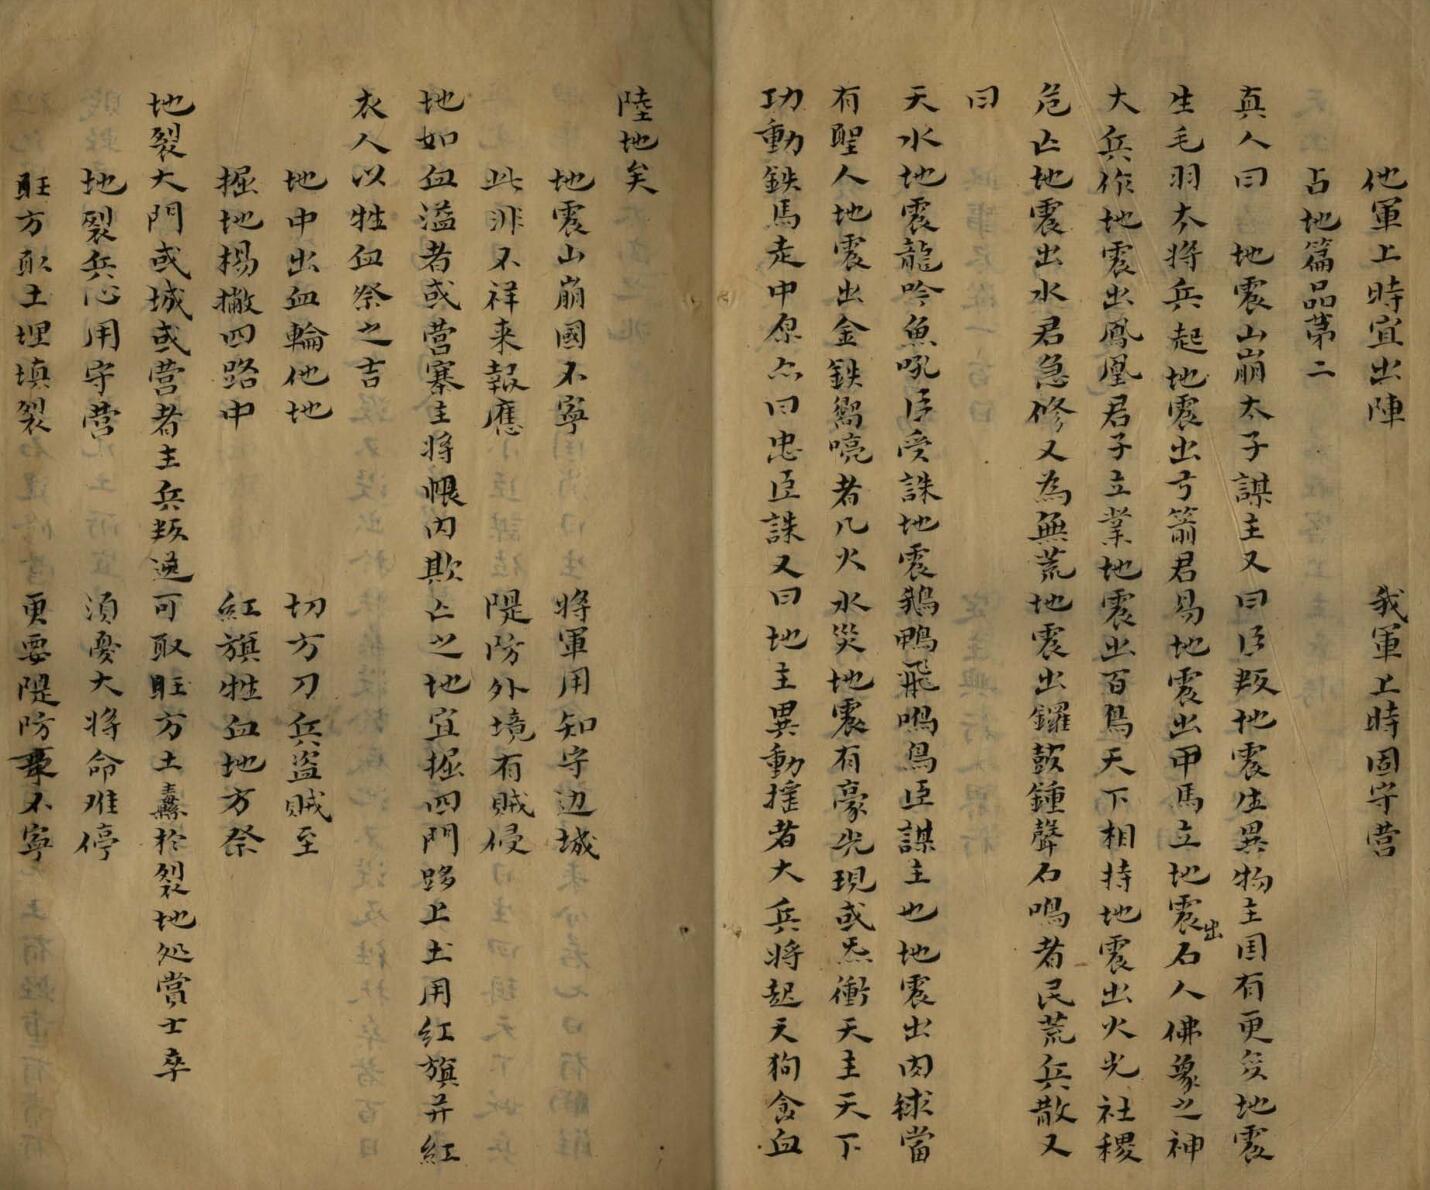 他軍上時宜出陣 我軍上時固守营
占地篇品第二
真人曰 地震山崩太子謀主又曰臣叛地震生異物主国有更变地震
生毛羽大将兵起地震出弓箭君易地震出甲馬立地震出石人佛象之神
大兵作地震出鳳凰君子立業地震出百鳥天下相持地震出火光社稷
危亡地震出水君急修又為無荒地震出鑼鼓鍾聲石鳴者民荒兵散又
曰
天水地震龍吟魚吼臣受誅地震鵝鴨飛鳴鳥臣謀主也地震出肉球當
有聖人地震出金鉄嚮喨者凡火水災地震有豪光現或炁衝天主天下
功動鉄馬走中原占曰忠臣誅又曰地主異動揺者大兵将起天狗食血
陸地矣
地震山崩國不寧 将軍用知守边城
此非不祥来報應 隄防外境有贼侵
地如血溢者或营寨主将帳内欺亡之地宜掘四門路上土用红旗并紅
衣人以牲血祭之吉
地中出血輪他地 切方刀兵盗贼至
掘地揚撇四路中 紅旗牲血地方祭
地裂大門或城或营者主兵叛逆可取旺方土纛於裂地处賞士卒
地裂兵心用守营 須憂大将命难停
旺方取土埋填裂 更要隄防事不寧